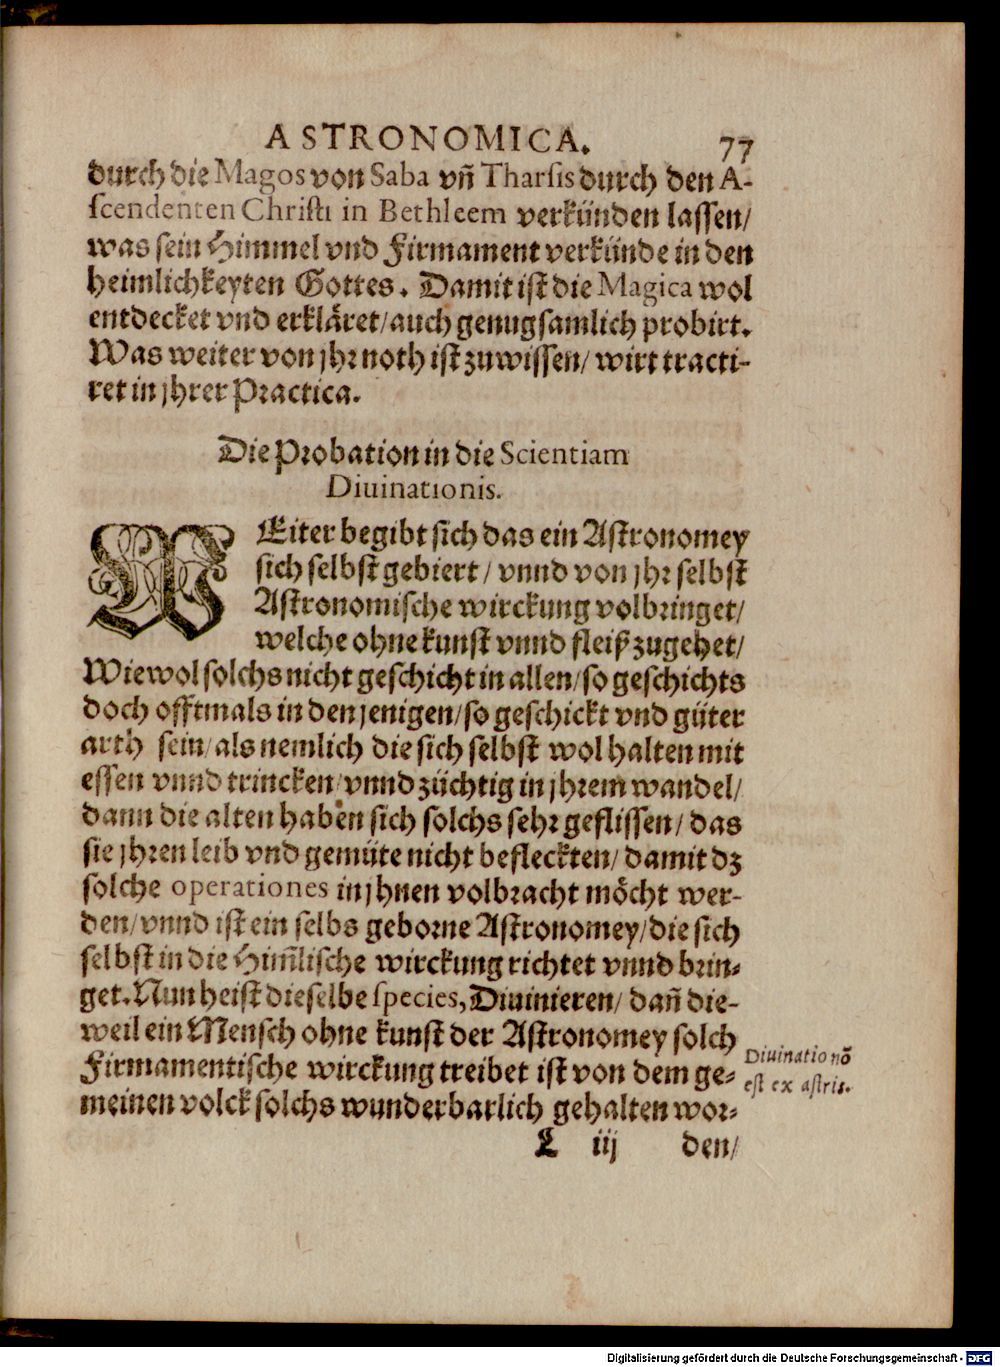 ASTRONOMICA. 77
durch die Magos von Saba vñ Tharsis durch den A-
scendenten Christi in Bethleem verkünden lassen/
was sein Himmel vnd Firmament verkünde in den
heimlichkeyten Gottes. Damit ist die Magica wol
entdecket vnd erkläret/auch genugsamlich probirt.
Was weiter von jhr noth ist zuwissen/ wirt tracti-
ret in jhrer Practica.
Die Probation in die Scientiam
Diuinationis.
WEiter begibt sich das ein Astronomey
sich selbst gebiert/ vnnd von jhr selbst
Astronomische wirckung volbringet/
welche ohne kunst vnnd fleiß zugehet/
Wiewol solchs nicht geschicht in allen/so geschichts
doch offtmals in den jenigen/so geschickt vnd güter
arth sein/als nemlich die sich selbst wol halten mit
essen vnnd trincken/vnnd züchtig in jhrem wandel/
dann die alten haben sich solchs sehr geflissen/ das
sie jhren leib vnd gemüte nicht befleckten/ damit dz
solche operationes in jhnen volbracht möcht wer-
den/vnnd ist ein selbs geborne Astronomey/die sich
selbst in die Him̃lische wirckung richtet vnnd brin-
get. Nun heist dieselbe species, Diuinieren/ dañ die-
weil ein Mensch ohne kunst der Astronomey solch
Firmamentische wirckung treibet ist von dem ge-
meinen volck solchs wunderbarlich gehalten wor-
Diuinatio nõ
est ex astris.
L iij den/
Digitalisierung gefördert durch die Deutsche Forschungsgemeinschaft - DFG